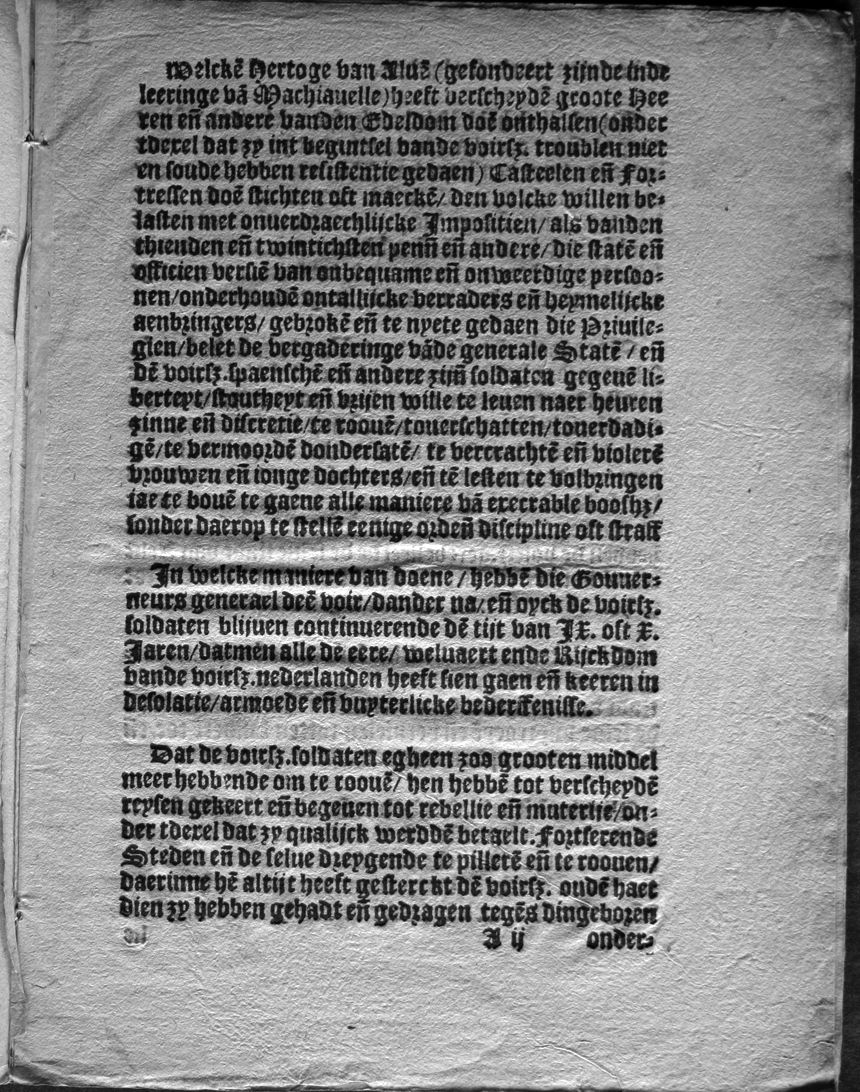 Welckē Hertoge van Aluē (gefondeert zijnde inde
leeringe vā Machiauelle) heeft verscheydē groote Hee
ren eñ andere vanden Edeldom doē onthalsen (onder
tdexel dat zy int begintsel vande voirsz. troublen niet
en soude hebben resistentie gedaen) Casteelen eñ For⸗
tressen doē stichten oft maeckē/ den volcke willen be⸗
lasten met onuerdraechlijcke Impositien/ als vanden
thienden eñ twintichsten penñ eñ andere/ die statē eñ
officien versiē van onbequame eñ onweerdige persoo⸗
nen/ onderhoudē ontallijcke verraders eñ heymelijcke
aenbringers/ gebrokē eñ te nyete gedaen die Priuile⸗
gien/ belet de vergaderinge vāde generale Statē / eñ
dē voirsz. spaenschē eñ andere zijñ soldaten gegeuē li⸗
berteyt/ stoutheyt eñ vrijen wille te leuen naer heuren
zinne eñ discretie/ te roouē/ touerschatten/ touerdadi⸗
gē/ te vermoordē dondersatē/ te vercrachtē eñ violerē
vrouwen eñ ionge dochters/ eñ tē lesten te volbringen
iae te bouē te gaene alle maniere vā execrable booshz/
sonder daerop te stellē eenige ordeñ discipline oft straff
In welcke maniere van doene / hebbē die Gouuer⸗
neurs generael deē voir/ dander na/ eñ oyck de voirsz.
soldaten blijuen continuerende dē tijt van IX. oft X.
Jaren/ datmen alle de eere/ weluaert ende Rijckdom
vande voirsz. nederlanden heeft sien gaen eñ keeren in
desolatie/ armoede eñ vuyterlicke bederffenisse.
Dat de voirsz. soldaten egheen zoo grooten middel
meer hebbende om te roouē/ hen hebbē tot verscheydē
reysen gekeert eñ begeuen tot rebellie eñ muterije/ on⸗
der tdexel dat zy qualijck werddē betaelt. Fortserende
Steden eñ de selue dreygende te pillerē eñ te roouen/
daerinne hē altijt heeft gesterckt dē voirsz. oudē haet
dien zy hebben gehadt eñ gedragen tegēs dingeboren
A ij onder⸗